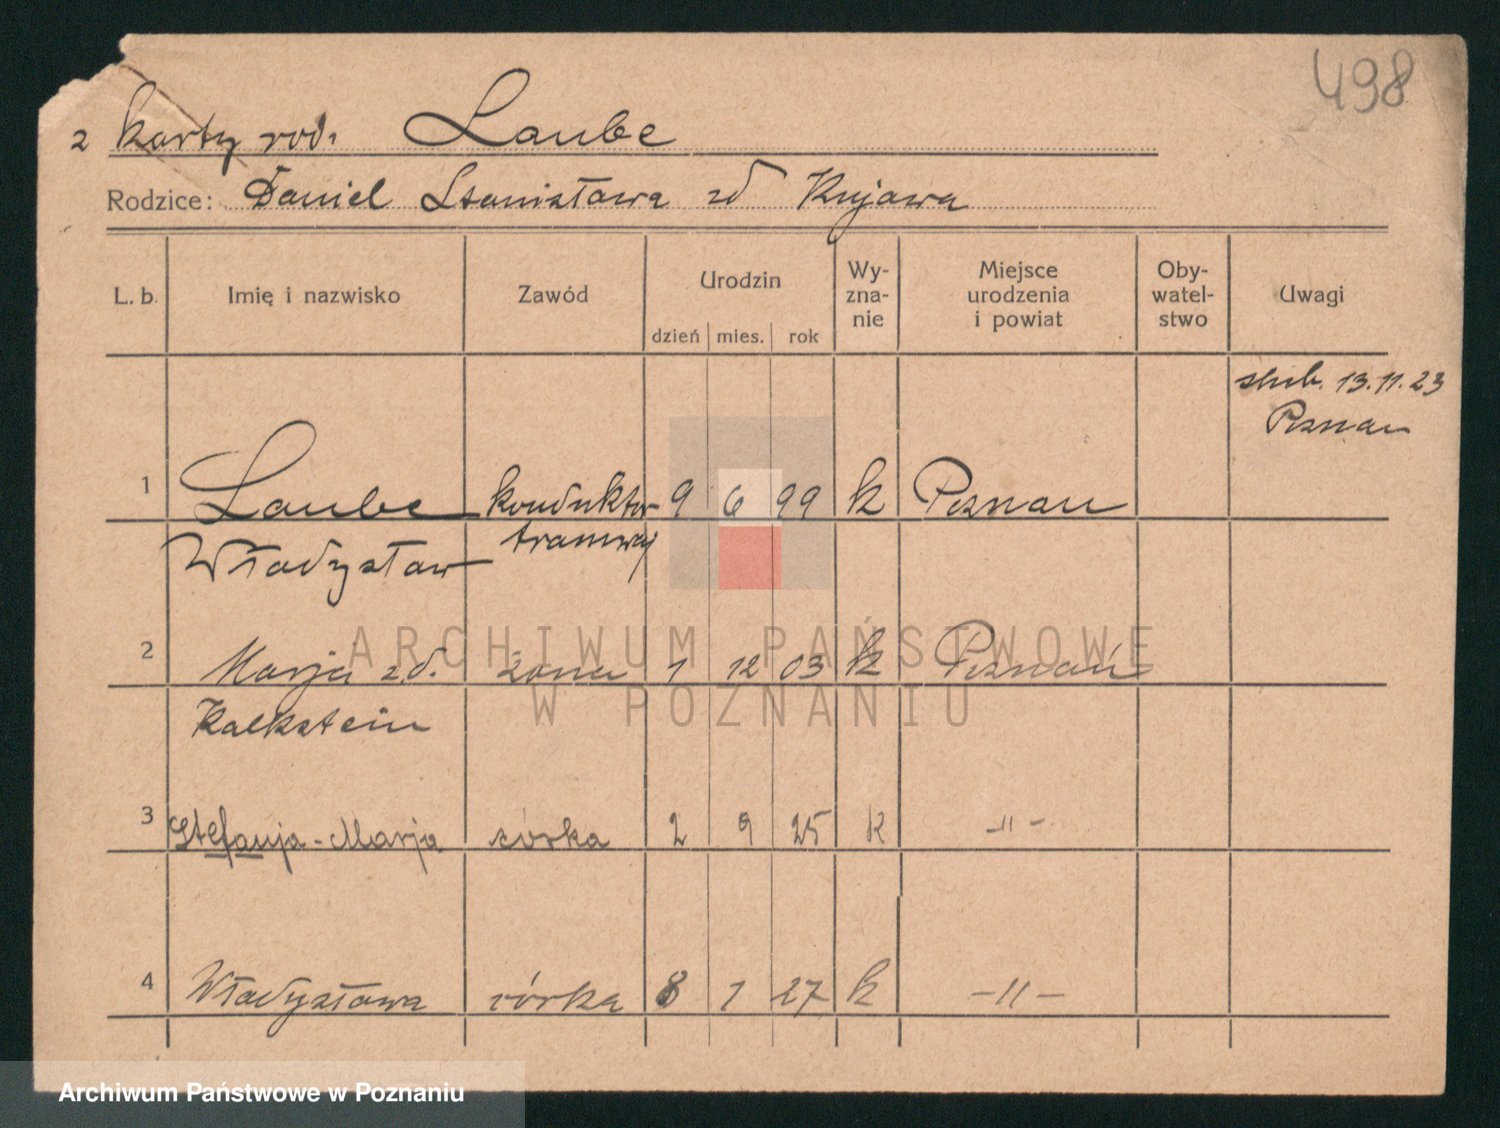 498
z karty rod. Laube
Rodzice: Daniel Stanisława zd Kujawa
L. b. Imię i nazwisko Zawód Urodzin dzień mies. rok Wy-zna-nie Miejsce urodzenia i powiat Oby-watel-stwo Uwagi
ślub. 13.11.23
Poznań
1 Laube konduktor 9 6 99 k Poznań
Władysław tramwaj
2 Marja z d. żona 1 12 03 k Poznań
Kalkstein
3 Stefanja-Marja córka 2 9 25 k -"-
4 Władysława córka 8 1 27 k -"-
ARCHIWUM PAŃSTWOWE
W POZNANIU
Archiwum Państwowe w Poznaniu